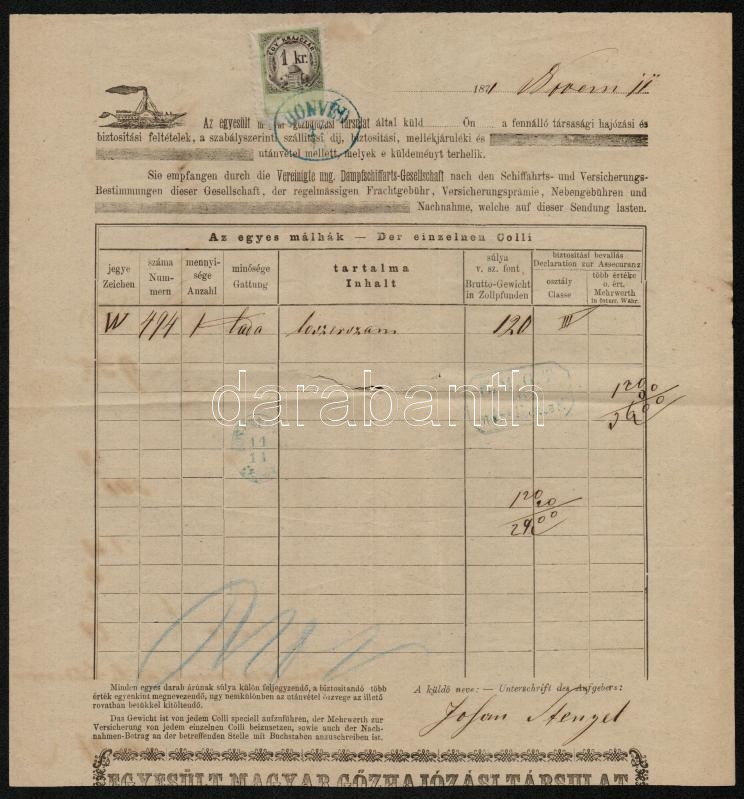 EGY KRAJCZÁR
1 kr.
HONVÉD
187
Az egyesült magyar gőzhajózási társulat által küld Ön a fennálló társasági hajózási és
biztositási feltételek, a szabályszerinti szállitási dij, biztositási, mellékjáruléki és
utánvétel mellett, melyek e küldeményt terhelik.
Sie empfangen durch die Vereinigte ung. Dampfschiffarts-Gesellschaft nach den Schiffahrts- und Versicherungs-
Bestimmungen dieser Gesellschaft, der regelmässigen Frachtgebühr, Versicherungsprämie, Nebengebühren und
Nachnahme, welche auf dieser Sendung lasten.
Az egyes málhák — Der einzelnen Colli
jegye Zeichen
száma Num- mern
mennyi- sége Anzahl
minősége Gattung
tartalma Inhalt
súlya v. sz. font Brutto-Gewicht in Zollpfunden
biztositási bevallás Declaration zur Assecuranz
osztály Classe
több értéke o. ért. Mehrwerth in österr. Währ.
W 494 1 120 III
120
120
11
11
darabanth
Minden egyes darab árúnak súlya külön feljegyzendő, a biztositandó több
érték egyenkint megnevezendő, ugy nemkülönben az utánvétel öszvege az illető
rovatban betükkel kitöltendő.
Das Gewicht ist von jedem Colli speciell aufzuführen, der Mehrwerth zur
Versicherung von jedem einzelnen Colli beizusetzen, sowie auch der Nach-
nahmen-Betrag an der betreffenden Stelle mit Buchstaben anzuschreiben ist.
A küldő neve: — Unterschrift des Aufgebers:
Johan Stengel
EGYESÜLT MAGYAR GŐZHAJÓZÁSI TÁRSULAT